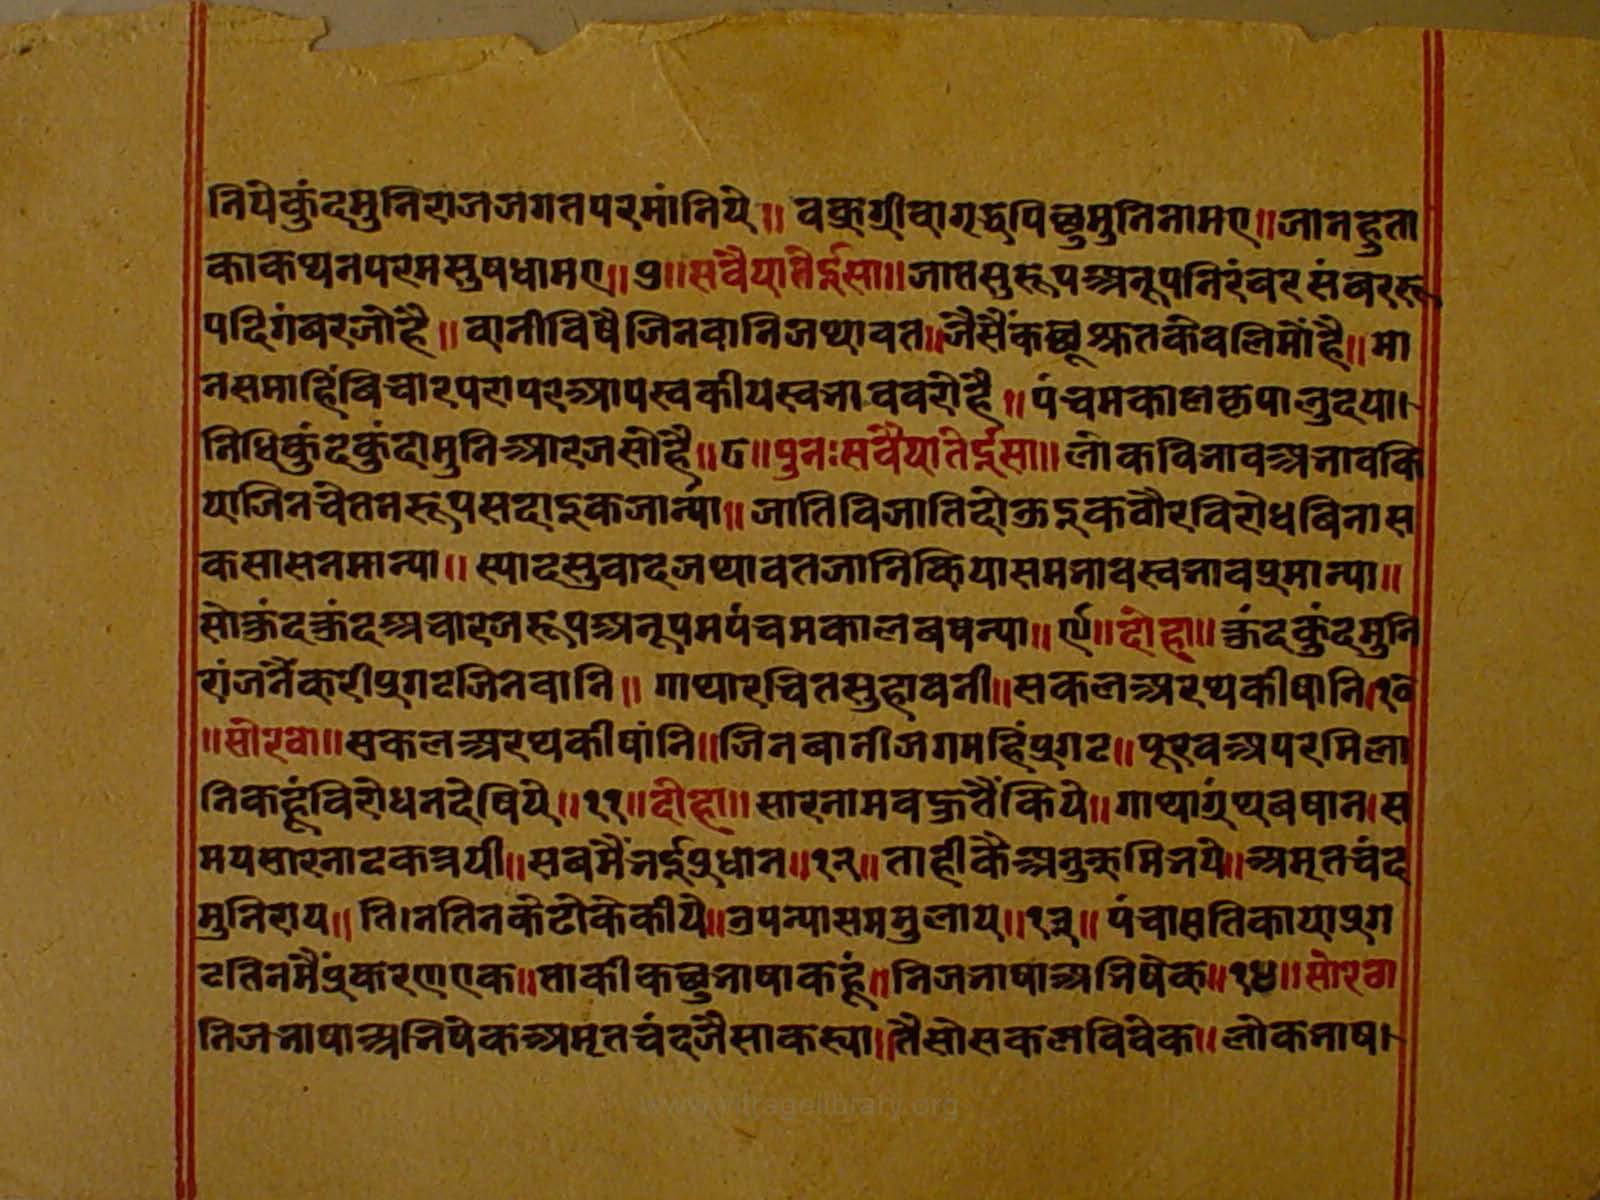 निपेकुंदमुनिराजजगतपरमांनिये॥ वक्रग्रीवागृद्धपिछुमुनिनामए॥जानहुता
काकथनपरमसुषधामए॥७॥सवैयातेईसा॥जातसुरूपअनूपनिरंबरसंबररू
पदिगंबरजोहै॥वानीविषैजिनवानिजथावत॥जैसैंकछूश्रुतकेवलिमोंहै॥मा
नसमाहिंविचारपरापरआपस्वकीयस्वभाववरोहै॥पंचमकालकृपालुदया
निधिकुंदकुंदामुनिआरजसोहै॥८॥पुनःसवैयातेईसा॥लोकविभावअभावकि
याजिनचेतनरूपसदाइकजान्या॥जातिविजातिदोऊइकवौरविरोधबिनास
कसासनमान्या॥स्यादसुवादजथावतजानिकियासमभावस्वभावप्रमान्या॥
सोकुंदकुंदअचारजरूपअनूपमपंचमकालबषन्या॥९॥दोहा॥कुंदकुंदमुनि
राजनैंकरीप्रगटजिनवानि॥गाथारचितसुहावनी॥सकलअरथकीषानि।१०
॥सोरठा॥सकलअरथकीषांनि॥जिनबानीजगमहिंप्रगट॥पूरवअपरमिला
निकहूंविरोधनदेषिये॥११॥दोहा॥सारनामवक्रतैंकिये॥गाथाग्रंथबषान।स
मयसारनाटकत्रयी॥सबमैंभईप्रधान॥१२॥ताहीकैअनुक्रमिभये॥अमृतचंद
मुनिराय॥तिनितिनकेटीकेकीये॥उपन्याससमुलाय॥१३॥पंचासतिकायाप्रग
टतिनमैंप्रकरणएक॥ताकीकछुभाषाकहूं॥निजभाषाअभिषेक॥१४॥सोरठा
निजभाषाअभिषेकअमृतचंदजैसाकह्या॥तैसोसकलविवेक॥लोकभाष
www.vitragelibrary.org